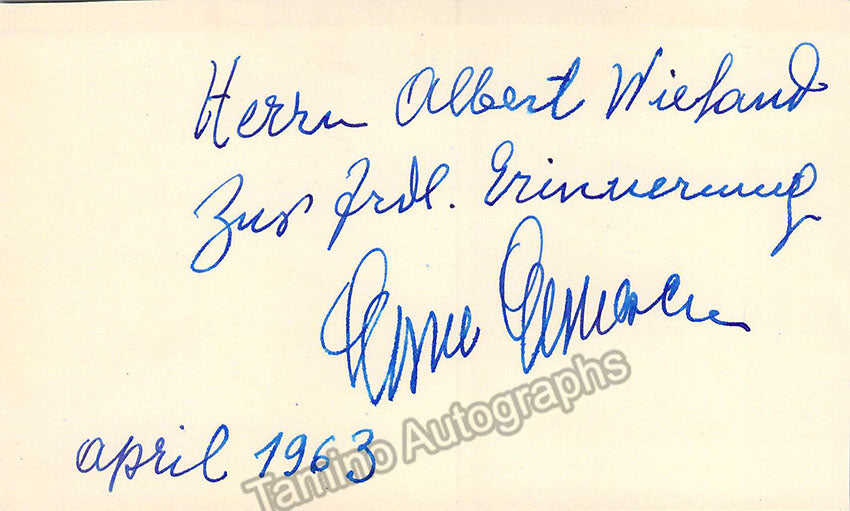 Herrn Albert Wieland
Zur frdl. Erinnerung
april 1963
Tamino Autographs